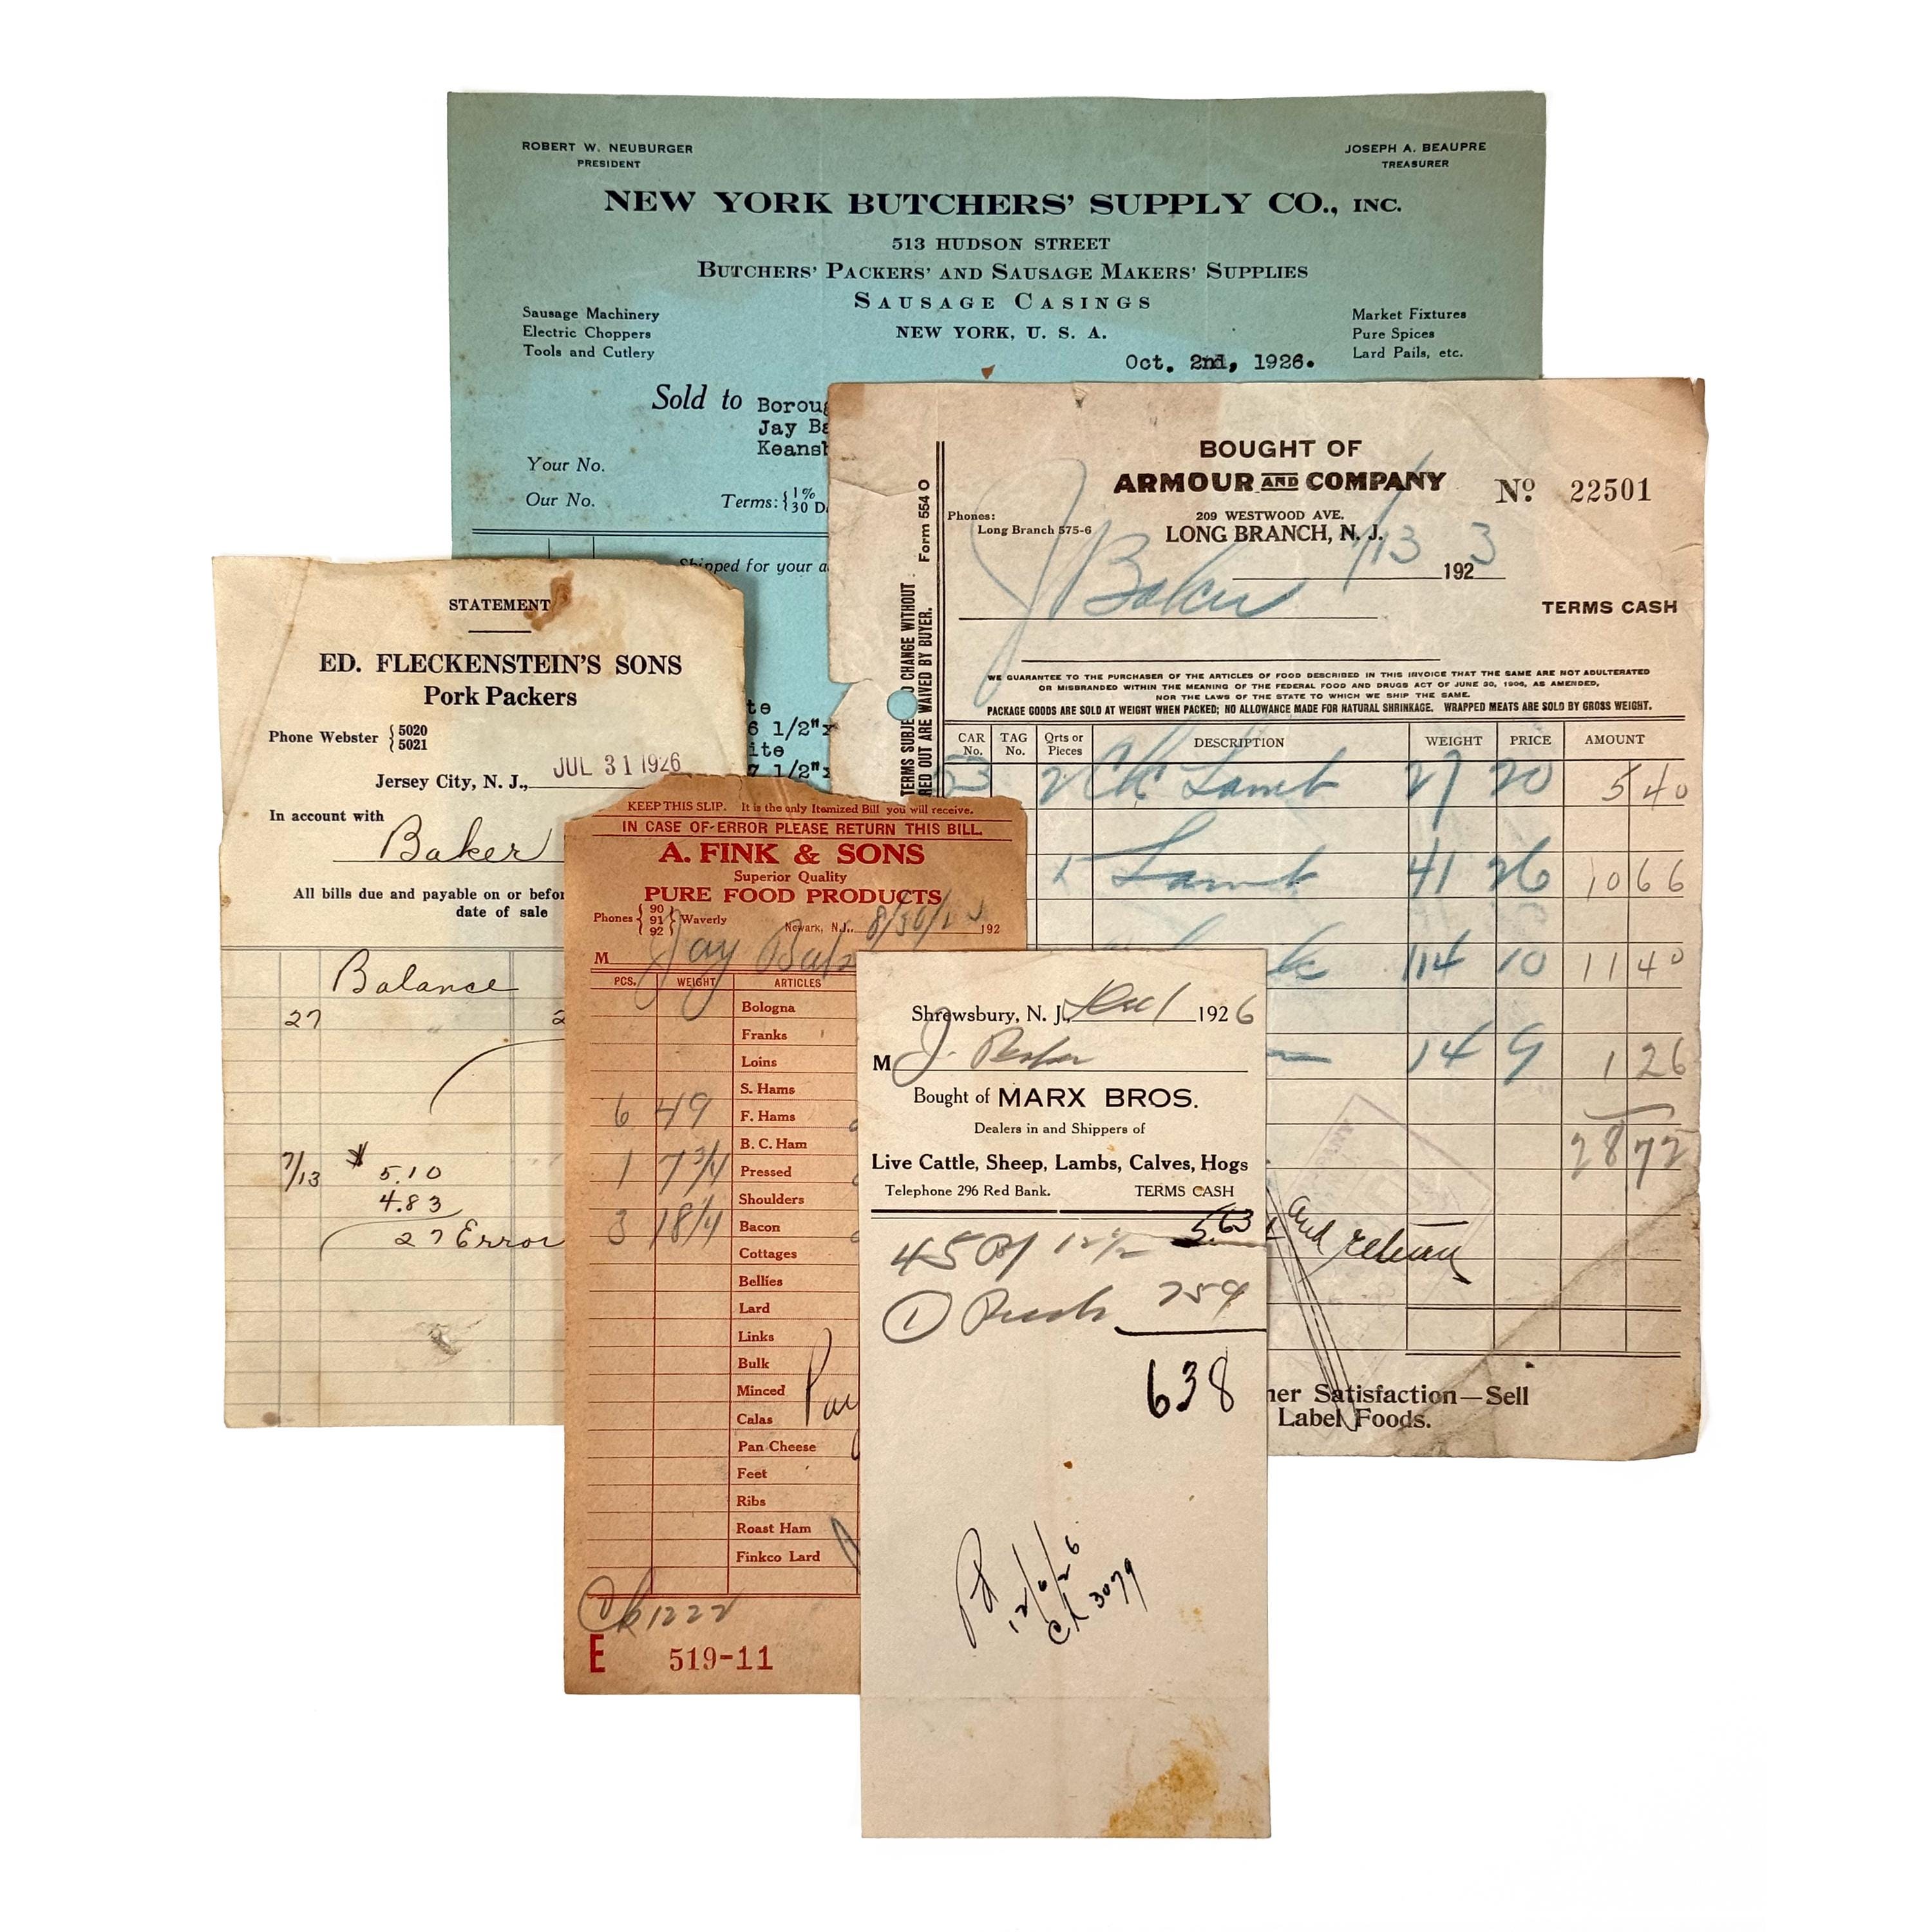 ROBERT W. NEUBURGER
PRESIDENT
JOSEPH A. BEAUPRE
TREASURER
NEW YORK BUTCHERS' SUPPLY CO., INC.
513 HUDSON STREET
BUTCHERS' PACKERS' AND SAUSAGE MAKERS' SUPPLIES
SAUSAGE CASINGS
NEW YORK, U. S. A.
Sausage Machinery
Electric Choppers
Tools and Cutlery
Market Fixtures
Pure Spices
Lard Pails, etc.
Oct. 2nd, 1926.
Sold to Boroug
Jay Ba
Keansb
Your No.
Our No.
Terms: 1%
30 D
Shipped for your a
te
6 1/2"x
ite
7 1/2"x
BOUGHT OF
ARMOUR AND COMPANY
Nº 22501
209 WESTWOOD AVE.
LONG BRANCH, N. J.
Phones:
Long Branch 575-6
1/13 1923
J Baker
TERMS CASH
Form 554 O
TERMS SUBJE O CHANGE WITHOUT
RED OUT ARE WAIVED BY BUYER.
WE GUARANTEE TO THE PURCHASER OF THE ARTICLES OF FOOD DESCRIBED IN THIS INVOICE THAT THE SAME ARE NOT ADULTERATED
OR MISBRANDED WITHIN THE MEANING OF THE FEDERAL FOOD AND DRUGS ACT OF JUNE 30, 1906, AS AMENDED,
NOR THE LAWS OF THE STATE TO WHICH WE SHIP THE SAME.
PACKAGE GOODS ARE SOLD AT WEIGHT WHEN PACKED; NO ALLOWANCE MADE FOR NATURAL SHRINKAGE. WRAPPED MEATS ARE SOLD BY GROSS WEIGHT.
CAR No. TAG No. Qrts or Pieces DESCRIPTION WEIGHT PRICE AMOUNT
23 2 Ck Lamb 27 20 5 40
1 Lamb 41 26 10 66
114 10 11 40
14 9 1 26
28 72
and return
ner Satisfaction—Sell
Label Foods.
STATEMENT
ED. FLECKENSTEIN'S SONS
Pork Packers
Phone Webster 5020
5021
Jersey City, N. J., JUL 31 1926
In account with
Baker
All bills due and payable on or befor
date of sale
Balance
27 2
7/13 $ 5.10
4.83
27 Error
KEEP THIS SLIP. It is the only Itemized Bill you will receive.
IN CASE OF ERROR PLEASE RETURN THIS BILL.
A. FINK & SONS
Superior Quality
PURE FOOD PRODUCTS
Phones 90
91 Waverly
92
Newark, N.J., 192
M Jay
PCS. WEIGHT ARTICLES
Bologna
Franks
Loins
S. Hams
6 49 F. Hams
B. C. Ham
1 7 3/4 Pressed
Shoulders
3 18 1/4 Bacon
Cottages
Bellies
Lard
Links
Bulk
Minced
Calas
Pan Cheese
Feet
Ribs
Roast Ham
Finkco Lard
Ck 1222
E 519-11
Shrewsbury, N. J., Dec 1 1926
M J. Baker
Bought of MARX BROS.
Dealers in and Shippers of
Live Cattle, Sheep, Lambs, Calves, Hogs
Telephone 296 Red Bank. TERMS CASH
45 12 1/2 5.63
1 75
638
Pd
12/6/26
Ck 3079